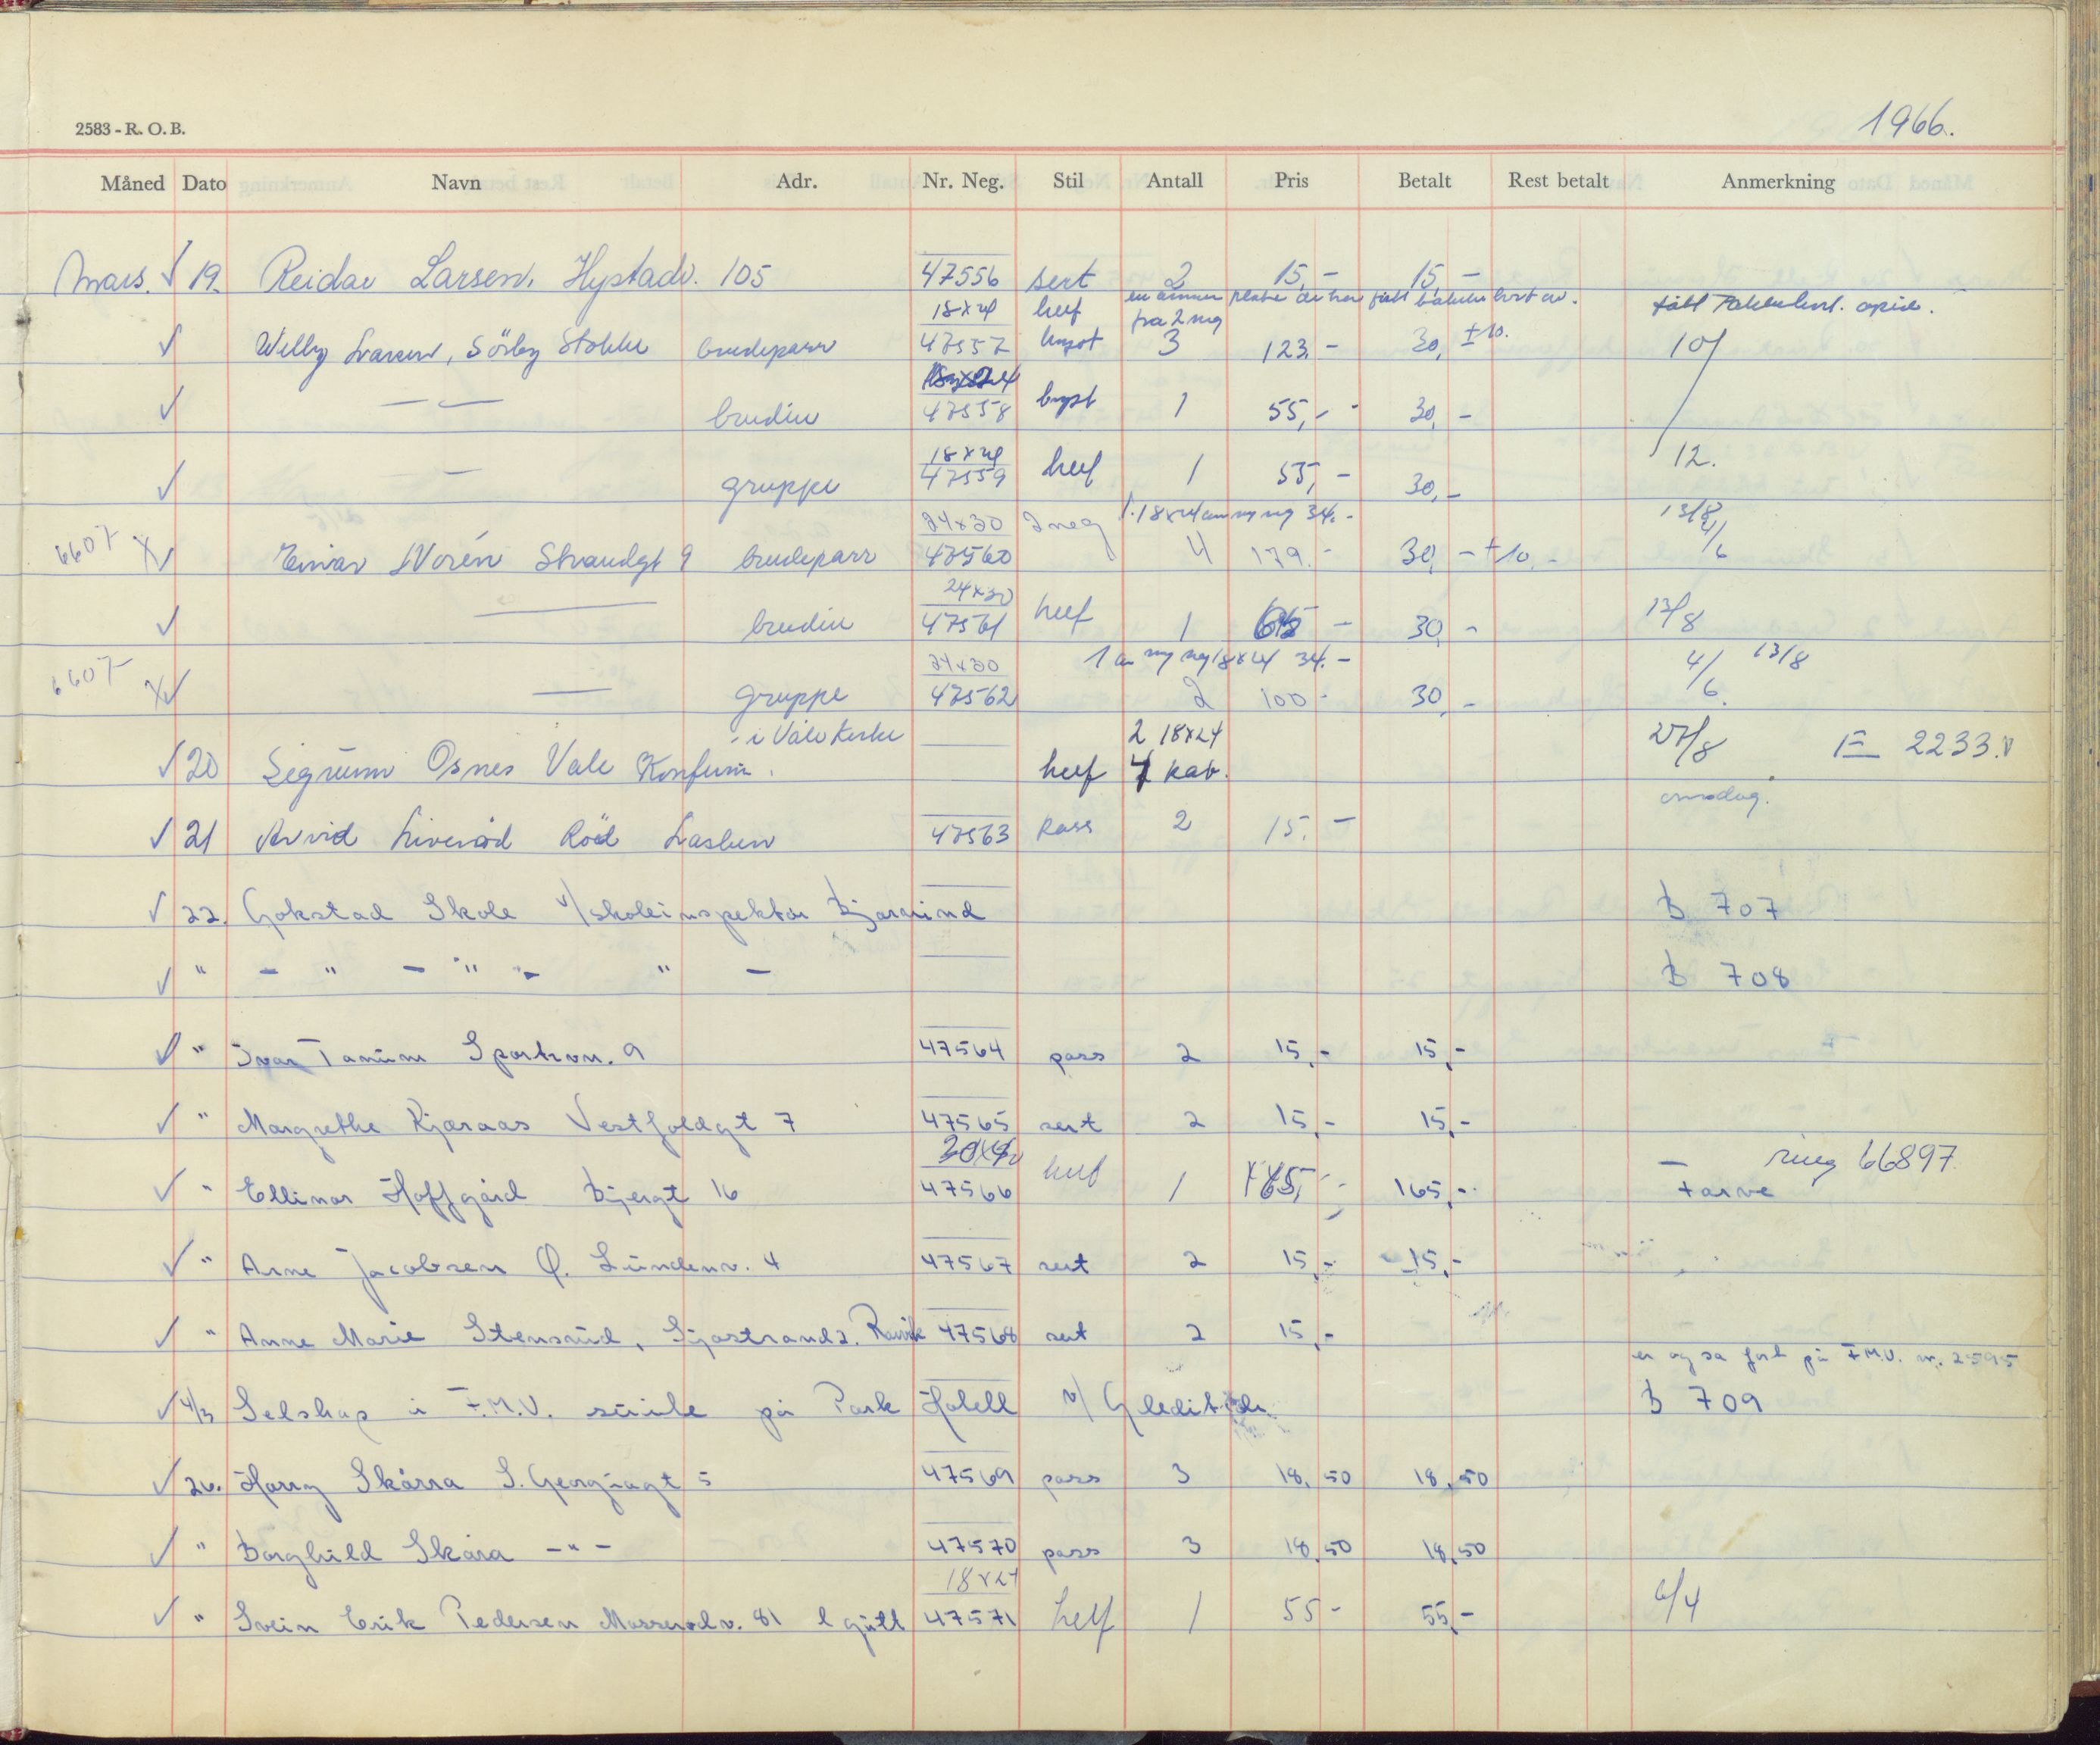 2583 - R. O. B.
1966.
Måned Dato Navn Adr. Nr. Neg. Stil Antall Pris Betalt Rest betalt Anmerkning
Mars. ✓ 19. Reidar Larsen, Hystadv. 105 47556 sert 2 15,- 15,-
18x24 helf fra 2 neg
✓ Sörby Stokke brudepar 47557 3 123,- 30,- +10. 10/
✓ — brudin 47558 byst 1 55,- 30,-
18x24
✓ — gruppe 47559 helf 1 55,- 30,- 12.
24x30 2 neg 1.18x24 34.- 13/8
6607 X✓ Einar Strandgt 9 brudepar 47560 4 179.- 30,- +10,- 4/6
24x30
✓ — brudin 47561 helf 1 65 - 30,- 13/8
24x30 1 ny neg 18x24 34.- 13/8
6607 X✓ — gruppe 47562 2 100- 30,- 4/6.
i Våle Kirke 2 18x24
✓ 20 Sigrunn Osnes Vale Konfirm. helf 4 kab. 27/8 F 2233.
onsdag.
✓ 21 Arvid Röd 47563 pass 2 15.-
✓ 22. Gokstad Skole v/skoleinspektör B 707
✓ " - " - " - " - B 708
✓ " Ivar Tanum Sportsvn. 9 47564 pass 2 15,- 15,-
✓ " Margrethe Kjæraas Vestfoldgt 7 47565 sert 2 15,- 15,-
30x40 ring 66897
✓ " Ellinor Hoffgård Bjergt 16 47566 helf 1 165,- 165,- Farve
✓ " Arne Jacobsen Ø. Lundenv. 4 47567 sert 2 15,- 15,-
✓ " Anne Marie Stensrud, Sjøstrand 2. 47568 sert 2 15,-
er og så ført på F.M.V. nr. 2595
✓ 4/3 Selskap i F.M.V. suite på Park Hotell v/ B 709
✓ 26. Harry Skårra S. Georgsgt 5 47569 pass 3 18,50 18,50
✓ " Borghild Skåra -"- 47570 pass 3 18,50 18,50
18x24
✓ " Svein Erik Pedersen 81 l gutt 47571 helf 1 55- 55,- 6/4